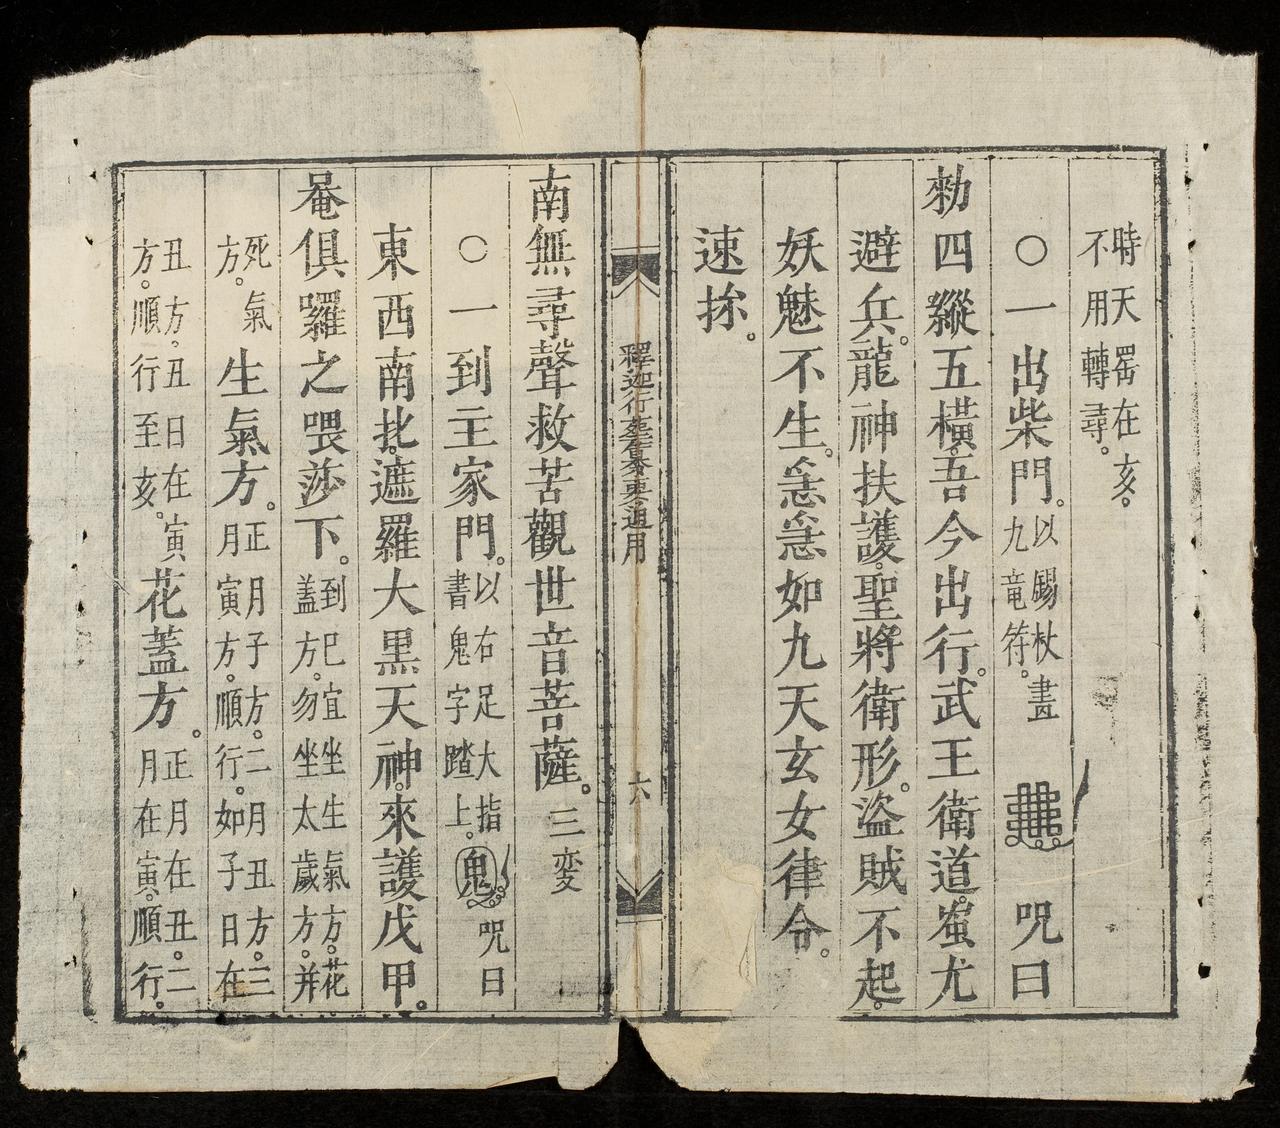 時天罡在亥。
不用轉尋。
〇一出柴門。以錫杖畫九竜符。咒曰
勑四縱五橫。吾今出行。武王衛道。蚩尤
避兵。龍神扶護。聖將衛形。盜賊不起。
妖魅不生。急急如九天玄女律令。
速捈。
釋迦行通用 六
南無尋聲救苦觀世音菩薩。三变
〇一到主家門。以右足大指書鬼字踏上。鬼 咒曰
東西南北。遮羅大黑天神。來護戊甲。
唵俱羅之喂莎下。到巳宜坐生氣方。花蓋方。勿坐太歲方。并
死氣方。生氣方。正月子方。二月丑方。三月寅方。順行。如子日在
丑方。丑日在寅方。順行至亥。花蓋方。正月在丑。二月在寅。順行。